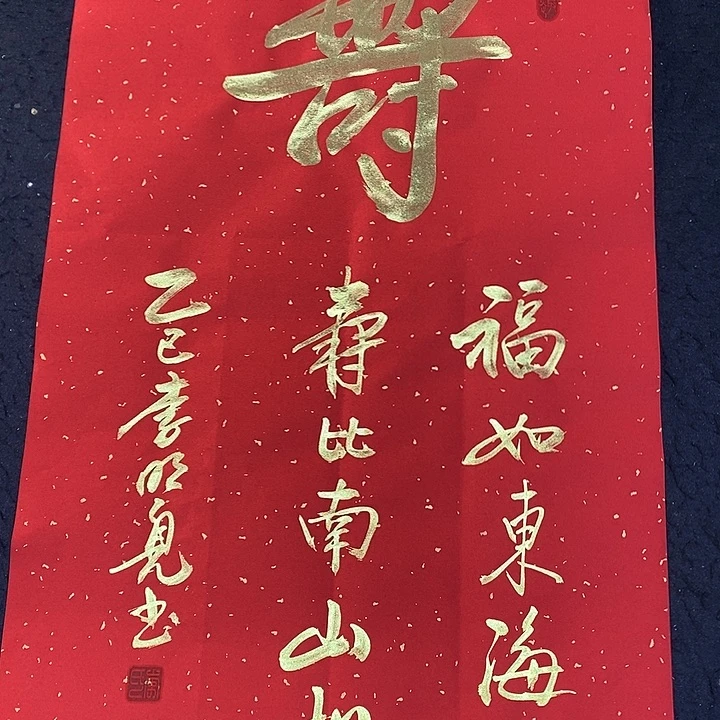 壽
福如東海
壽比南山
乙巳李明亮书